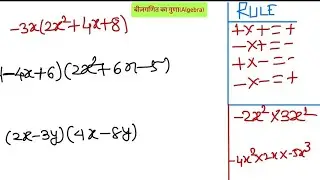 बीजगणित का गुणा(Algebra)
-3x(2x²+4x+8)
-4x+6)(2x²+6x-5)
(2x-3y)(4x-8y)
RULE
+x+=+
-x+=-
+x-=-
-x-=+
-2x²×3x²
-4x³×2x×-5x³